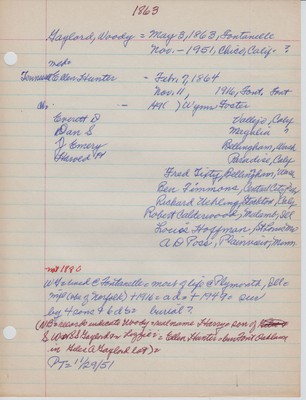 1863
Gaylord, Woody = May 3, 1863, Fontanelle
Nov. - 1951, Chico, Calif. ?
Ellen Hunter - Feb. 7, 1864
Nov. 11, 1916, Font, Font
Ch. - ) Wynn Foster
Everett D Vallejo, Calif
Dan S ?
J Emery Bellingham, Wash
Harold Paradise, Calif
Fred Tifty, Bellingham, Wash
Ben Timmons, Central City, Neb
Richard Uehling, Stockton, Calif
Robert Calderwood,
Louis Hoffman, St. Louis, Mo
A D Poss, Plainview, Minn
mt 1890
W B = raised C Fontanelle = most of life @ Plymouth, Ill =
(of Norfolk) + 1916 = a.d. + 1944 = sur
by 4 sons & 6 d b = burial ?
(NB = records indicate Woody real name Harry = son of
S Gaylord = Ellen Hunter = bur Font
in Giles A Gaylord Lot) =
PT = 11/29/51